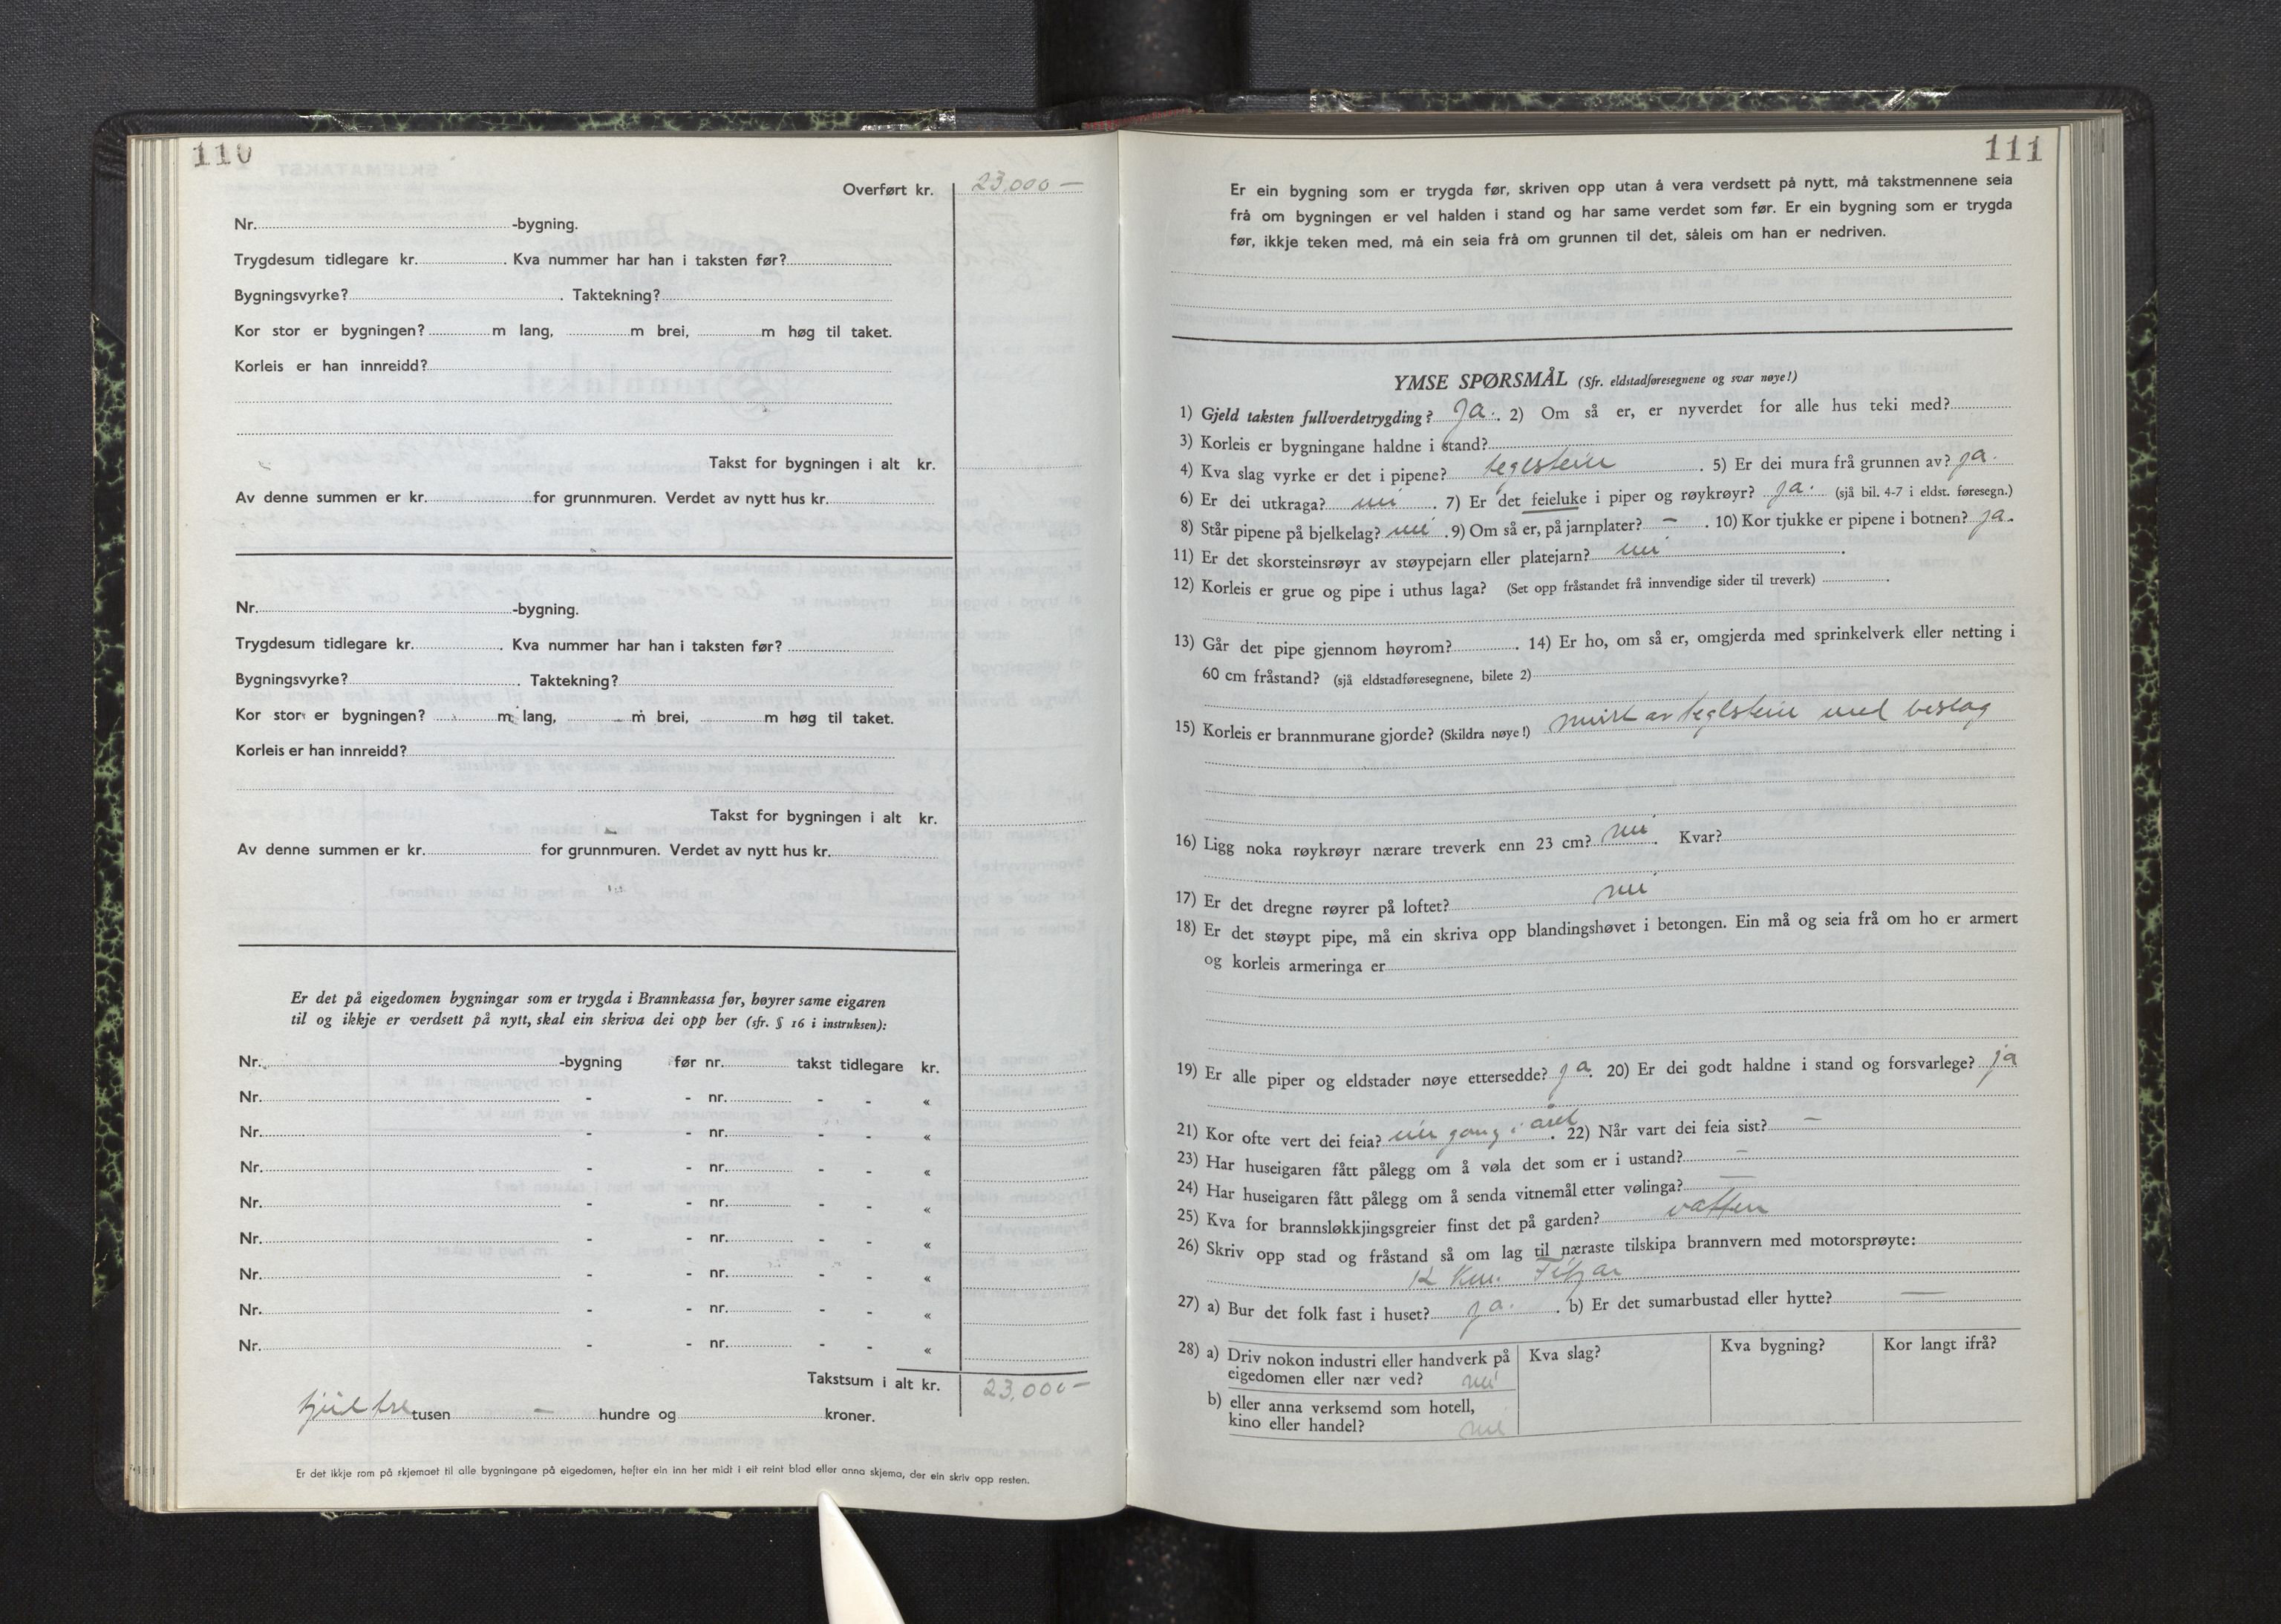 110
Overført kr. 23.000 —
Nr. -bygning.
Trygdesum tidlegare kr. . Kva nummer har han i taksten før?
Bygningsvyrke? . Taktekning?
Kor stor er bygningen? m lang, m brei, m høg til taket.
Korleis er han innreidd?
Takst for bygningen i alt kr.
Av denne summen er kr. for grunnmuren. Verdet av nytt hus kr.
Nr. -bygning.
Trygdesum tidlegare kr. . Kva nummer har han i taksten før?
Bygningsvyrke? . Taktekning?
Kor stor er bygningen? m lang, m brei, m høg til taket.
Korleis er han innreidd?
Takst for bygningen i alt kr.
Av denne summen er kr. for grunnmuren. Verdet av nytt hus kr.
Er det på eigedomen bygningar som er trygda i Brannkassa før, høyrer same eigaren
til og ikkje er verdsett på nytt, skal ein skriva dei opp her (sfr. § 16 i instruksen):
Nr. -bygning før nr. takst tidlegare kr.
Nr. - - nr. - - «
Nr. - - nr. - - «
Nr. - - nr. - - «
Nr. - - nr. - - «
Nr. - - nr. - - «
Nr. - - nr. - - «
Nr. - - nr. - - «
Nr. - - nr. - - «
Takstsum i alt kr. 23,000 —
tusen — hundre og kroner.
Er det ikkje rom på skjemaet til alle bygningane på eigedomen, hefter ein inn her midt i eit reint blad eller anna skjema, der ein skriv opp resten.
111
Er ein bygning som er trygda før, skriven opp utan å vera verdsett på nytt, må takstmennene seia
frå om bygningen er vel halden i stand og har same verdet som før. Er ein bygning som er trygda
før, ikkje teken med, må ein seia frå om grunnen til det, såleis om han er nedriven.
YMSE SPØRSMÅL (Sfr. eldstadføresegnene og svar nøye!)
1) Gjeld taksten fullverdetrygding? Ja. . 2) Om så er, er nyverdet for alle hus teki med?
3) Korleis er bygningane haldne i stand?
4) Kva slag vyrke er det i pipene? teglstein . 5) Er dei mura frå grunnen av? ja.
6) Er dei utkraga? nei . 7) Er det feieluke i piper og røykrøyr? ja. (sjå bil. 4-7 i eldst. føresegn.)
8) Står pipene på bjelkelag? nei . 9) Om så er, på jarnplater? — . 10) Kor tjukke er pipene i botnen? ja.
11) Er det skorsteinsrøyr av støypejarn eller platejarn? nei .
12) Korleis er grue og pipe i uthus laga? (Set opp fråstandet frå innvendige sider til treverk) .
13) Går det pipe gjennom høyrom? . 14) Er ho, om så er, omgjerda med sprinkelverk eller netting i
60 cm fråstand? (sjå eldstadføresegnene, bilete 2)
15) Korleis er brannmurane gjorde? (Skildra nøye!) murt av teglstein med beslag
16) Ligg noka røykrøyr nærare treverk enn 23 cm? nei . Kvar?
17) Er det dregne røyrer på loftet? nei
18) Er det støypt pipe, må ein skriva opp blandingshøvet i betongen. Ein må og seia frå om ho er armert
og korleis armeringa er
19) Er alle piper og eldstader nøye ettersedde? ja. 20) Er dei godt haldne i stand og forsvarlege? ja
21) Kor ofte vert dei feia? ein gang i året . 22) Når vart dei feia sist? —
23) Har huseigaren fått pålegg om å vøla det som er i ustand? —
24) Har huseigaren fått pålegg om å senda vitnemål etter vølinga? —
25) Kva for brannsløkkjingsgreier finst det på garden? vatten
26) Skriv opp stad og fråstand så om lag til næraste tilskipa brannvern med motorsprøyte:
12 km. Fitjar
27) a) Bur det folk fast i huset? ja. . b) Er det sumarbustad eller hytte? —
28) a) Driv nokon industri eller handverk på eigedomen eller nær ved? nei
Kva slag? Kva bygning? Kor langt ifrå?
b) eller anna verksemd som hotell,
kino eller handel? nei